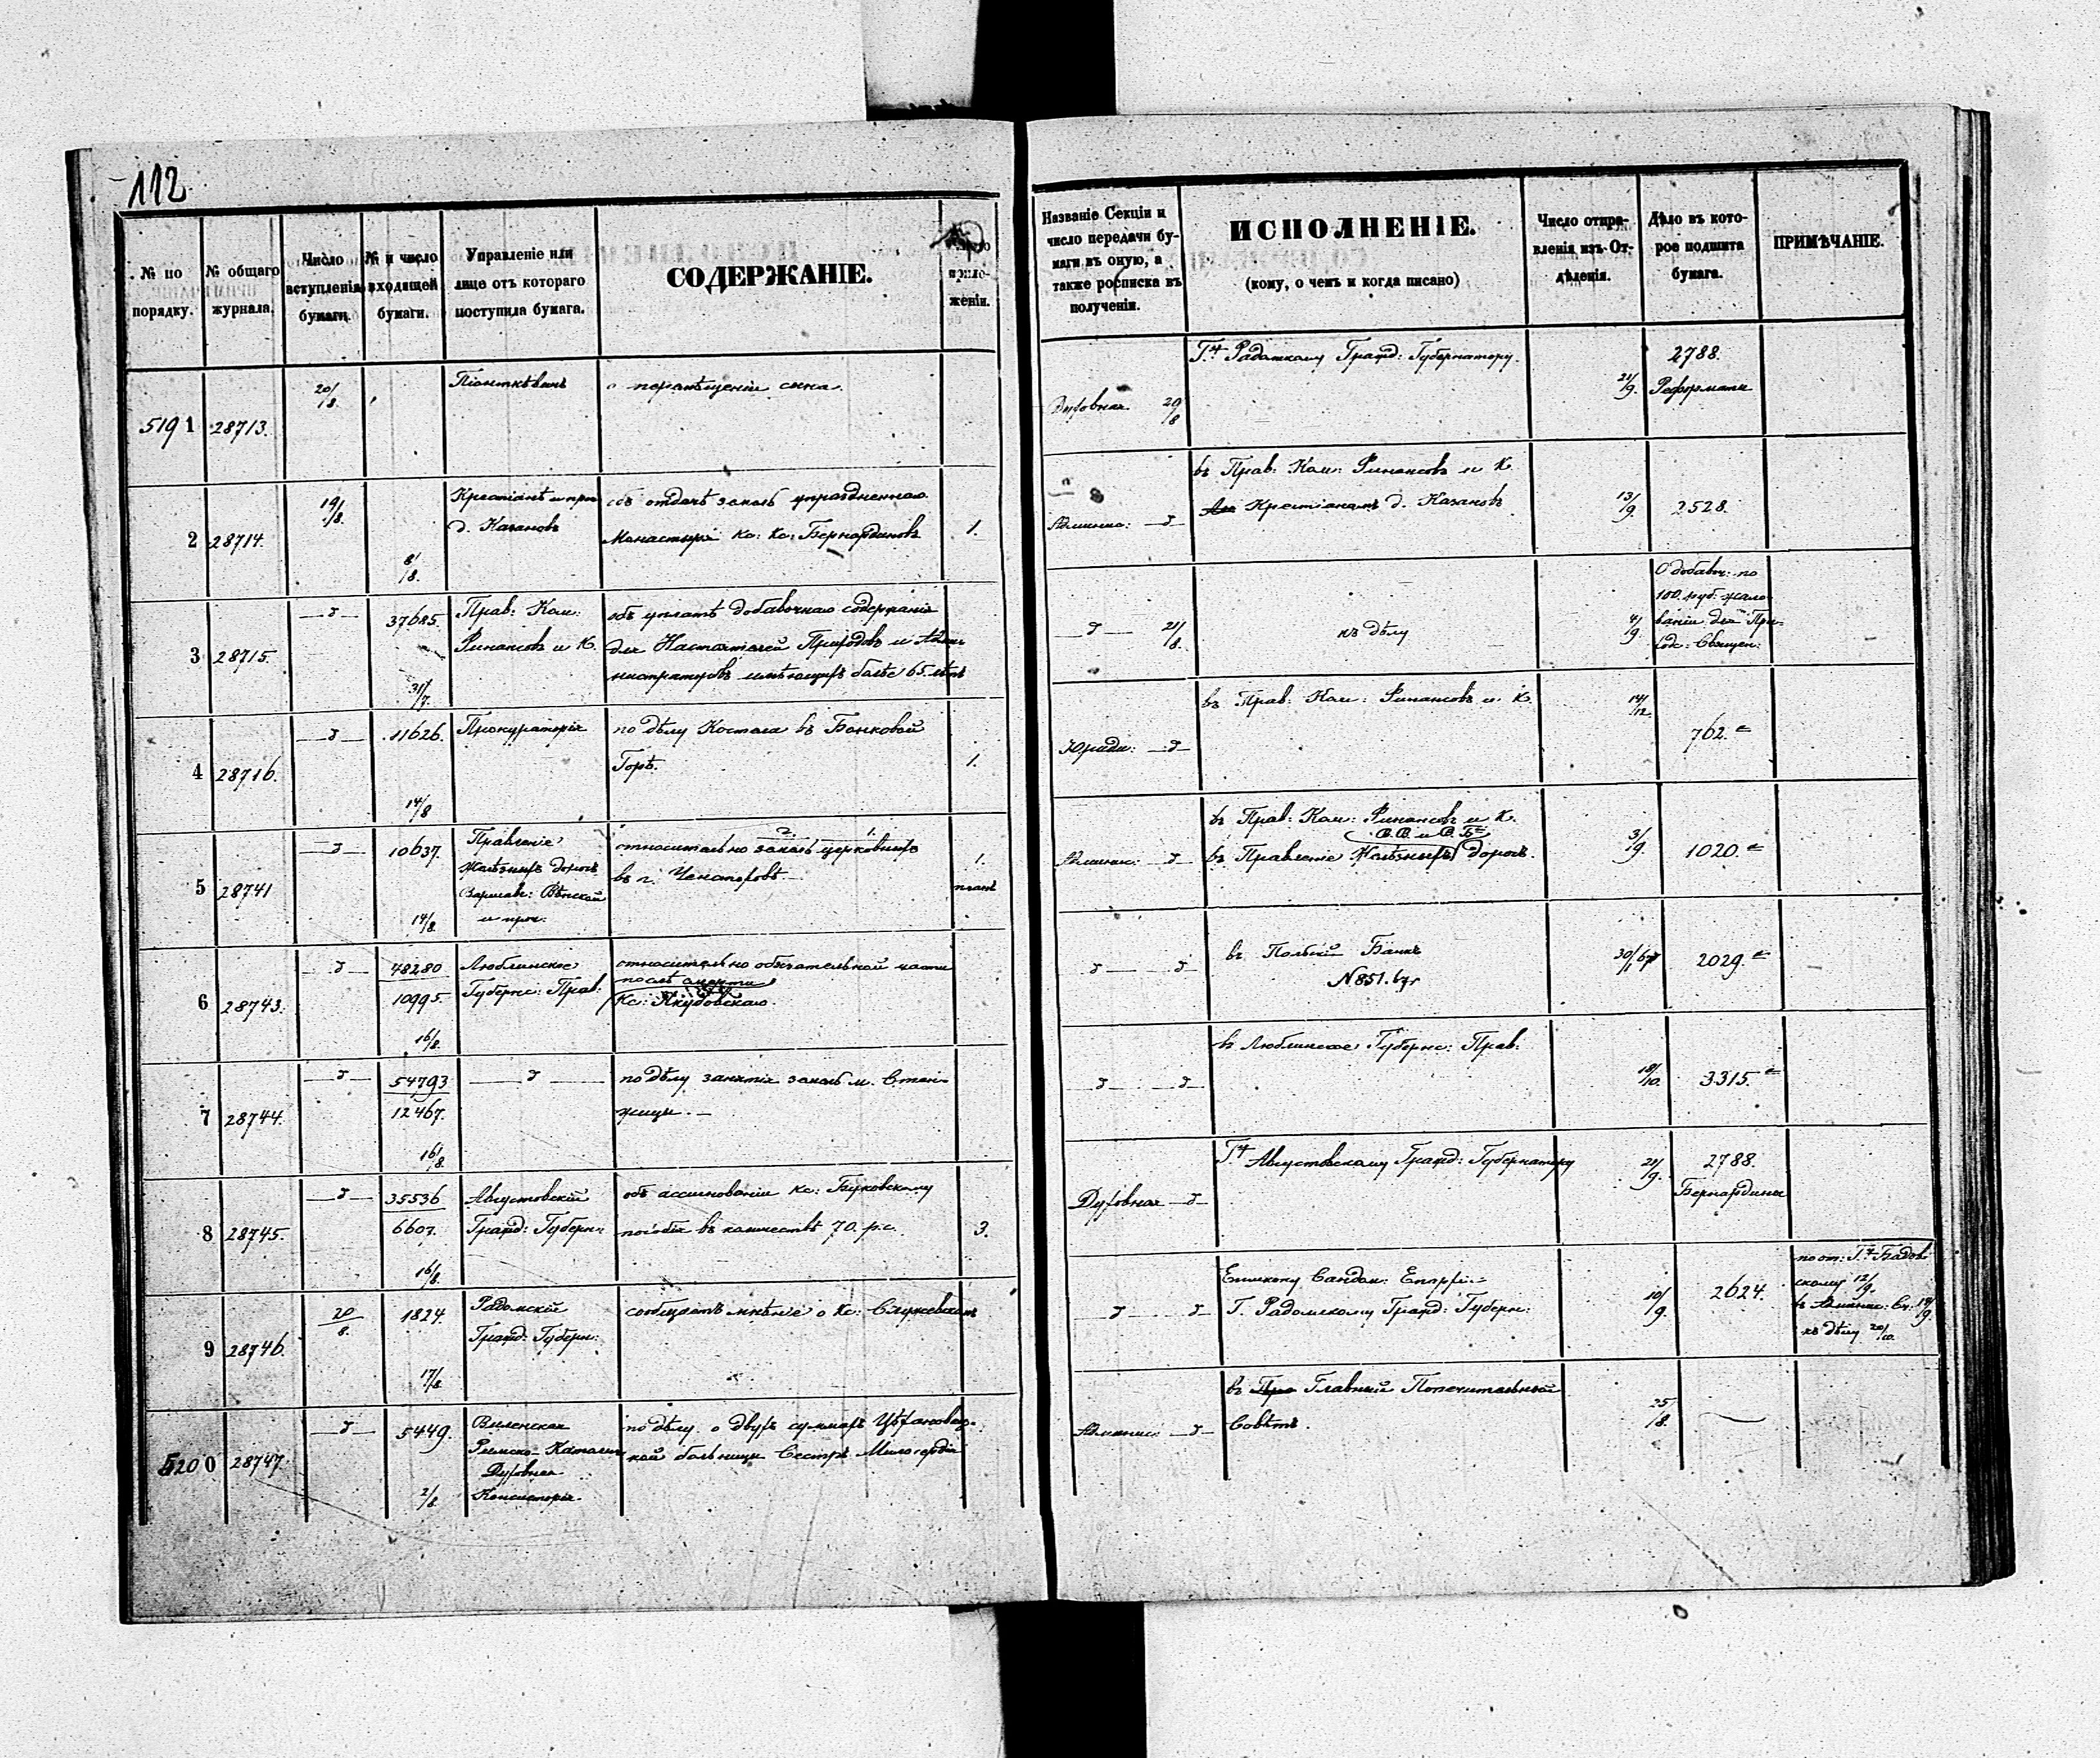 112
№ по
порядку.
№ общаго
журнала.
Число
вступленія
бумаги.
№ и число
входящей
бумаги.
Управленіе или
лице отъ котораго
поступила бумага.
СОДЕРЖАНІЕ.
прило-
женій.
Названіе Секціи и
число передачи бу-
маги въ оную, а
также росписка въ
полученіи.
ИСПОЛНЕНІЕ.
(кому, о чемъ и когда писано)
Число отпра-
вленія изъ От-
дѣленія.
Дѣло въ кото-
рое подшита
бумага.
ПРИМѢЧАНІЕ.
5191
28713.
20/8.
о перемѣщеніи сына.
Духовная 20/8
Радомскому Гражд: Губернатору.
21/9.
2788.
Реформаты
2
28714.
19/8.
8/8.
Крестіанъ и проч
д. Казановъ
объ отдачѣ земль упраздненнаго
Монастыря Кс: Кс: Бернардиновъ
1.
Админис: д
въ Прав: Ком: Финансовъ и К.
Крестіанамъ д. Казановъ
13/9.
2528.
3
28715.
д
37685.
31/7.
Прав: Ком:
Финансовъ и К.
объ уплатѣ добавочнаго содержанія
для Настоятелей Приходовъ и Адми-
нистраторовъ имѣющихъ болѣе 65 лѣтъ
д 21/8.
къ дѣлу
4/9.
О добавоч: по
100 руб: жало-
ваніи для При-
ход: Священ:
4
28716.
д
11626.
14/8
Прокураторія
по дѣлу Костела въ Боньковой
Горѣ.
1.
Юриди: д
въ Прав: Ком: Финансовъ и К.
14/12.
762.
5
28741
д
10637.
14/8.
Правленіе
Желѣзныхъ дорогъ
Варшавс: Вѣнской
и проч:
2. 1.
относительно земль церковныхъ
въ г. Ченстоховѣ
1.
планъ
Админис: д
въ Прав: Ком: Финансовъ и К.
въ Правленіе Желѣзныхъ дорогъ.
3/9
1020.
6
28743.
д
48280
10995.
16/8.
Люблинское
Губернс: Прав:
относительно обязательной части
послѣ смерти
Кс:
д д
въ Польскій Банкъ
N 851. 67г
30/1 67
2029.
7
28744.
д
54793
12467.
16/8.
д
по дѣлу занятія земль м. Стен-
жицы.
д д
въ Люблинское Губернс: Прав:
18/10.
3315.
8
28745.
д
35536
6607.
16/8.
Августовскій
Гражд: Губерн:
объ ассигнованіи Кс: Буковскому
пособія въ количествѣ 70. р. с.
3.
Духовная д
Августовскому Гражд: Губернатору
21/9.
2788.
Бернардины
9
28746.
20/8.
1824.
17/8.
Радомскій
Гражд: Губерн:
сообщаетъ мнѣніе о Кс:
д д
Епископу Сандом: Епархіи
Г. Радомскому Гражд: Губерн:
10/9.
2624.
скому 12/9.
къ дѣлу 20/10.
5200
28747.
д
5449.
2/8.
Виленская
Римско-Католич
Духовная
Консисторія
по дѣлу о двухъ суммахъ Цѣхановец-
кой больницы Сестръ Милосердія
Админис: д
въ Главный Попечительный
Совѣтъ.
25/8.